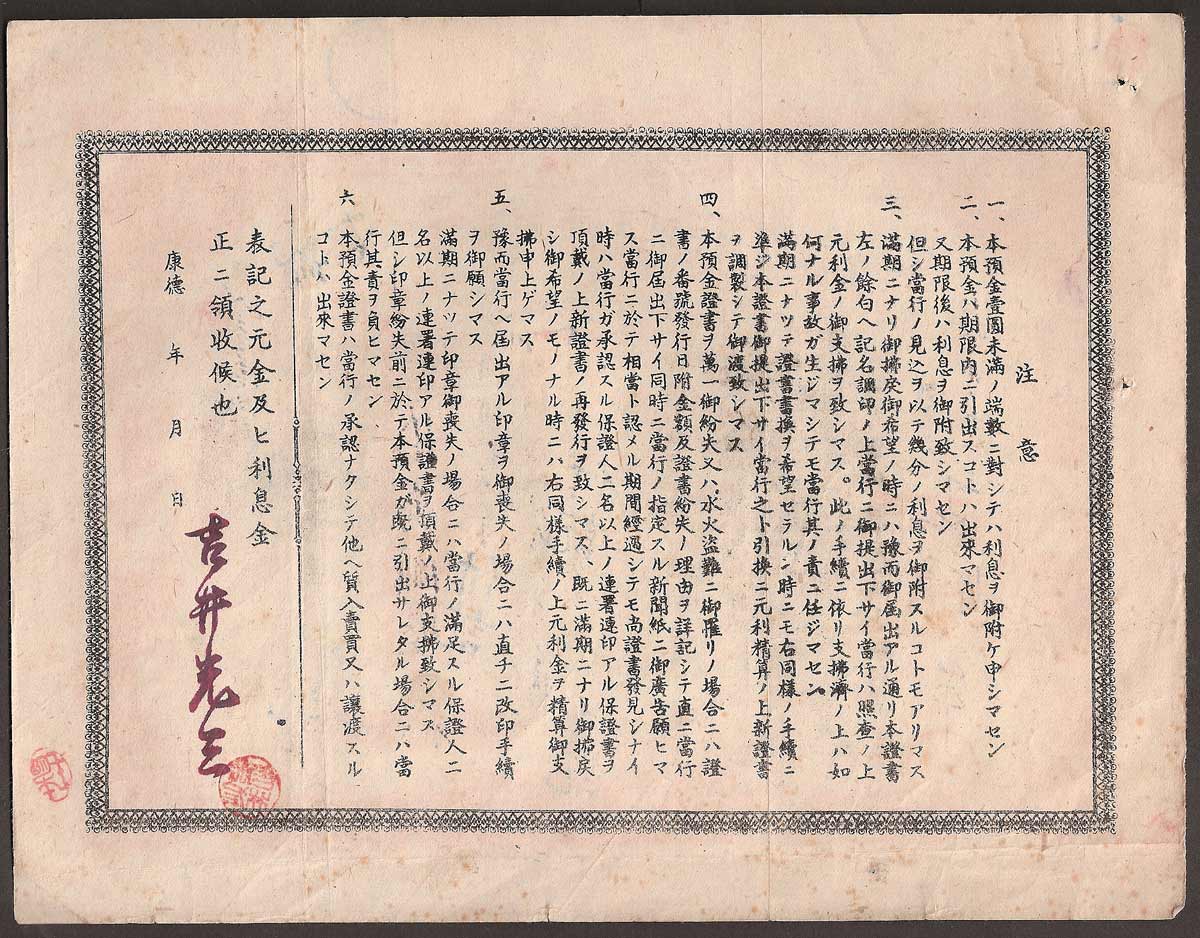 注意
一、本預金壹圓未滿ノ端數ニ對シテハ利息ヲ御附ケ申シマセン
二、本預金ハ期限内ニ引出スコトハ出來マセン
又期限後ハ利息ヲ御附致シマセン
但シ當行ノ見込ヲ以テ幾分ノ利息ヲ御附スルコトモアリマス
三、滿期ニナリ御拂戾御希望ノ時ニハ豫而御届出アル通リ本證書
左ノ餘白ヘ記名調印ノ上當行ニ御提出下サイ當行ハ照査ノ上
元利金ノ御支拂ヲ致シマス。此ノ手續ニ依リ支拂濟ノ上ハ如
何ナル事故ガ生ジマシテモ當行其ノ責ニ任ジマセン
滿期ニナツテ證書書換ヲ希望セラルヽ時ニモ右同樣ノ手續ニ
準ジ本證書御提出下サイ當行之ト引換ニ元利精算ノ上新證書
ヲ調製シテ御渡致シマス
四、本預金證書ヲ萬一御紛失又ハ水火盜難ニ御罹リノ場合ニハ證
書ノ番號發行日附金額及證書紛失ノ理由ヲ詳記シテ直ニ當行
ニ御屆出下サイ同時ニ當行ノ指定スル新聞紙ニ御廣告願ヒマ
ス當行ニ於テ相當ト認メル期間經過シテモ尚證書發見シナイ
時ハ當行ガ承認スル保證人二名以上ノ連署連印アル保證書ヲ
頂戴ノ上新證書ノ再發行ヲ致シマス、既ニ滿期ニナリ御拂戾
シ御希望ノモノナル時ニハ右同樣手續ノ上元利金ヲ精算御支
拂申上ゲマス
五、豫而當行ヘ屆出アル印章ヲ御喪失ノ場合ニハ直チニ改印手續
ヲ御願シマス
滿期ニナツテ印章御喪失ノ場合ニハ當行ノ滿足スル保證人二
名以上ノ連署連印アル保證書ヲ頂戴ノ上御支拂致シマス
但シ印章紛失前ニ於テ本預金ガ既ニ引出サレタル場合ニハ當
行其責ヲ負ヒマセン
六、本預金證書ハ當行ノ承認ナクシテ他ヘ質入賣買又ハ讓渡スル
コトハ出來マセン
表記之元金及ヒ利息金
正ニ領收候也
康德 年 月 日
吉井光三